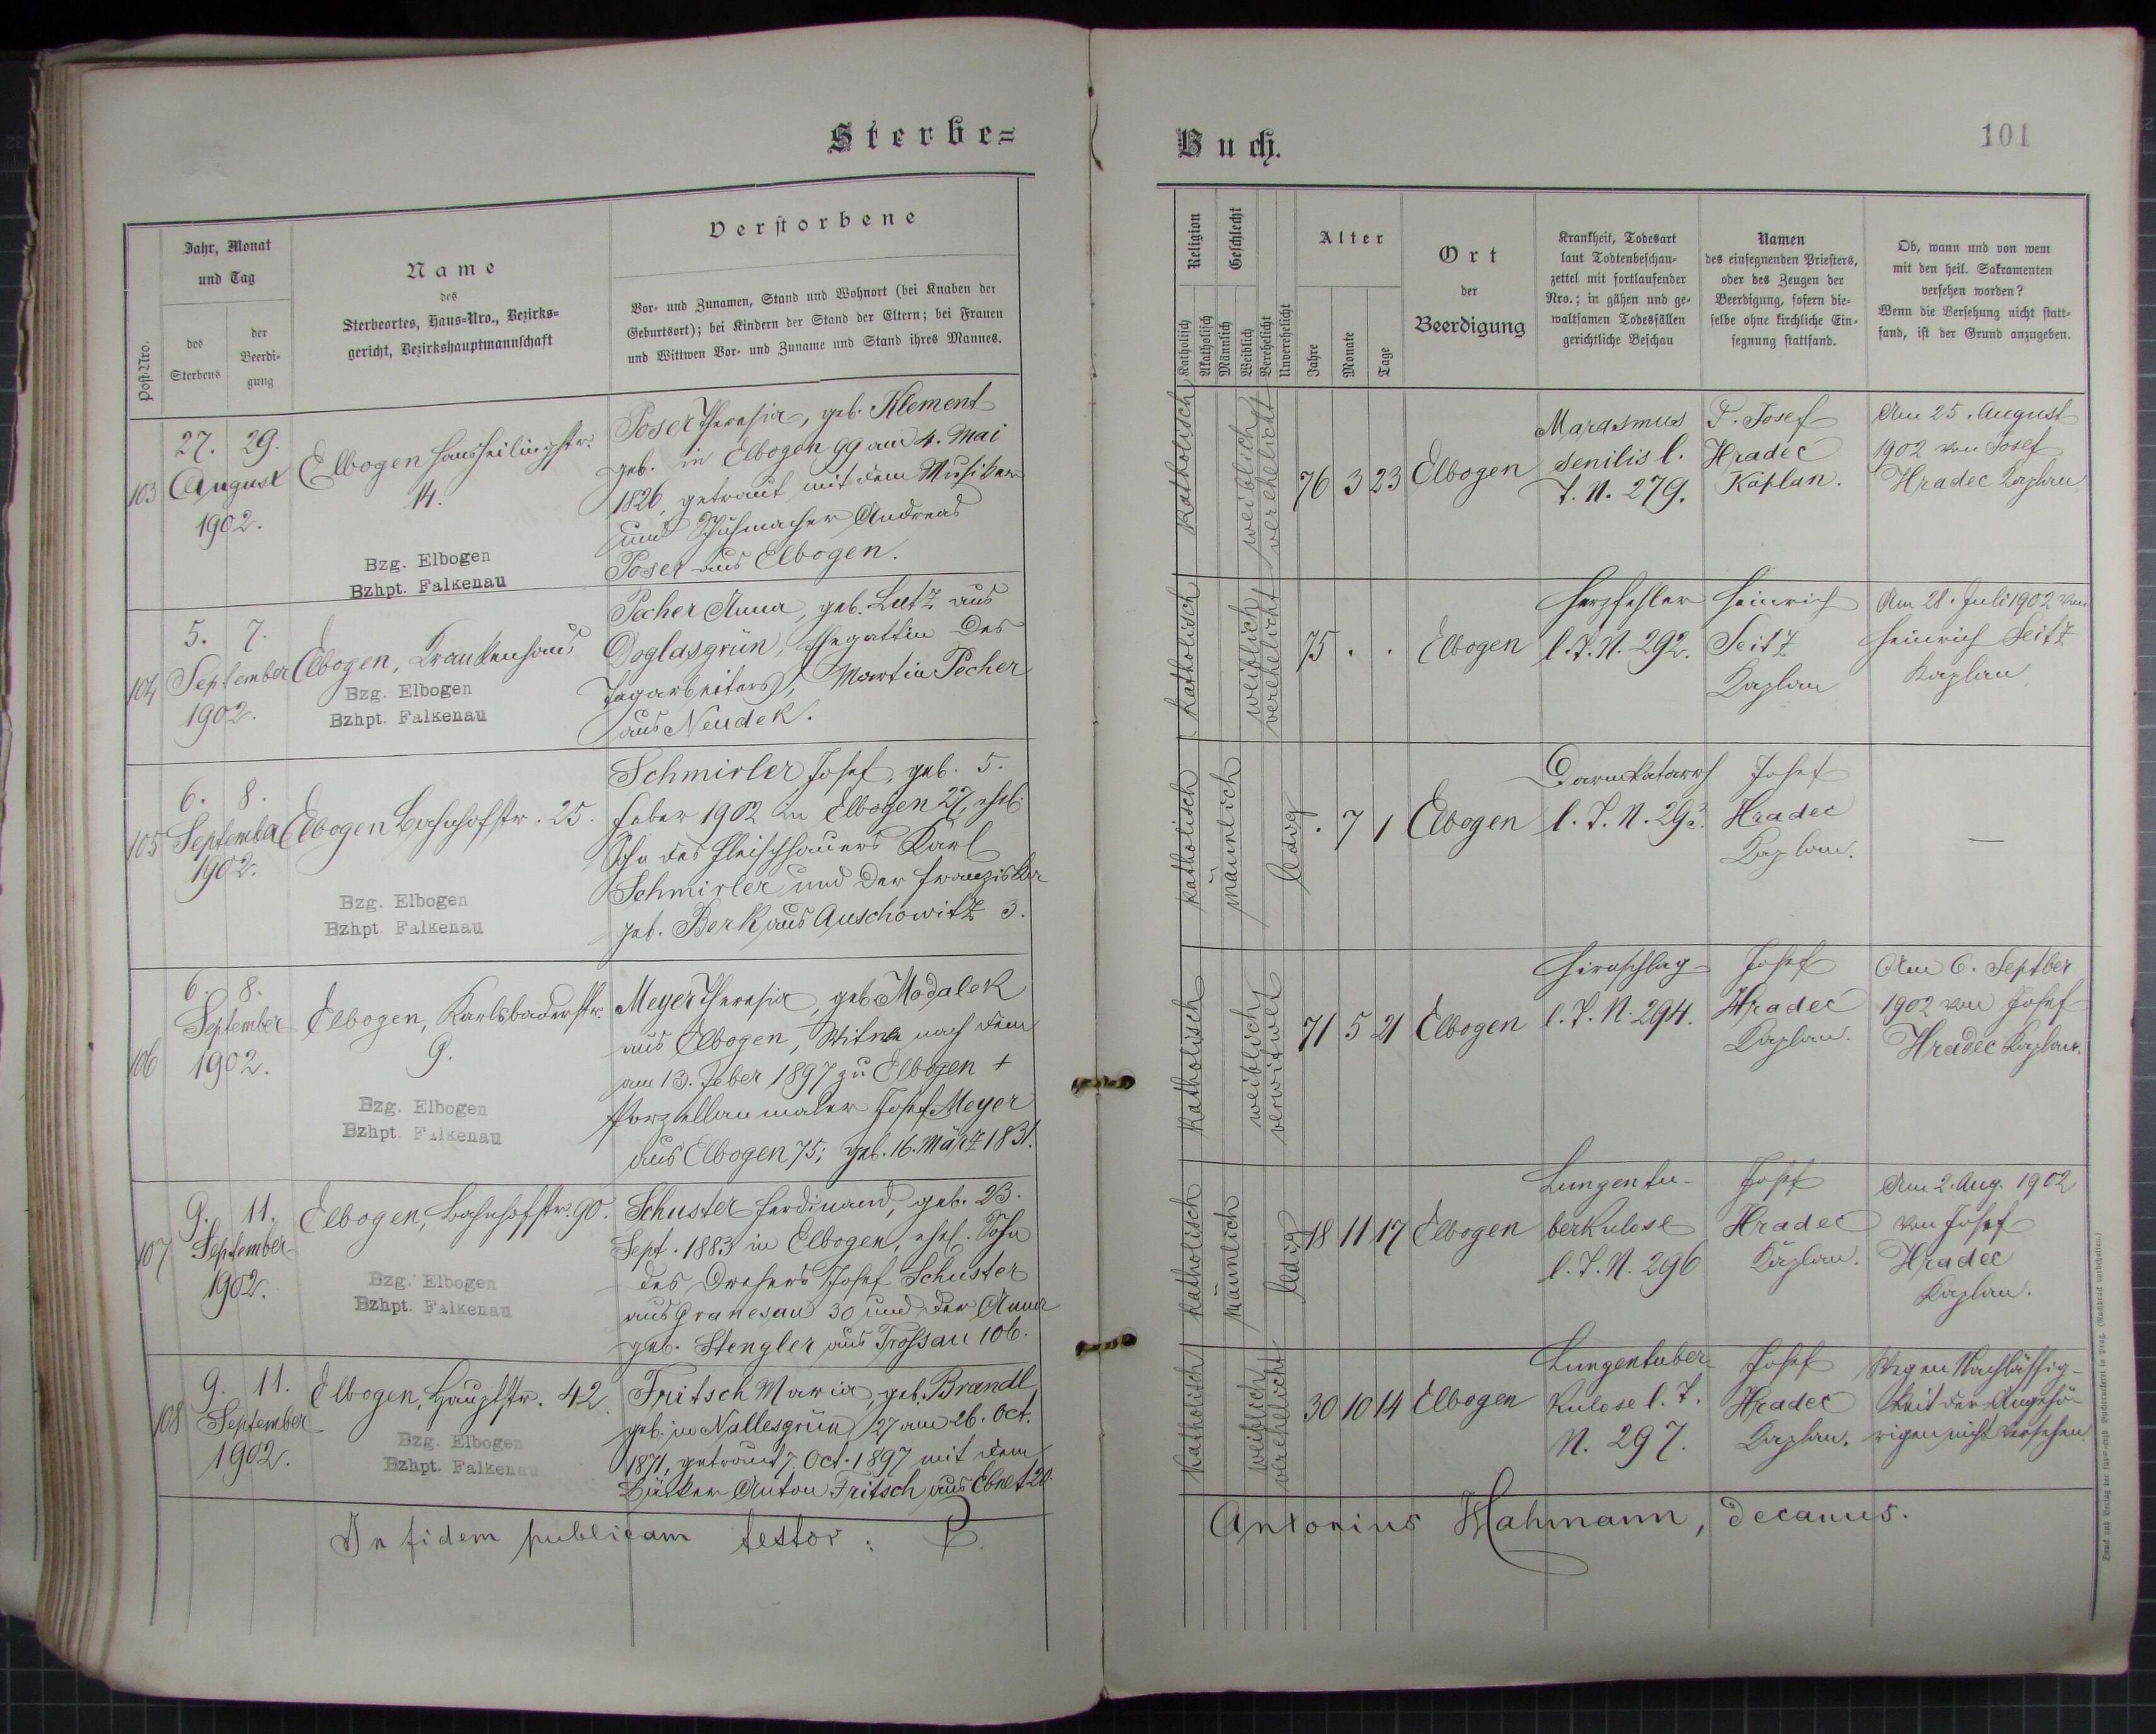 Sterbe=
Post-Nro.
Jahr, Monat
und Tag
des
Sterbens
der
Beerdi-
gung
Name
des
Sterbeortes, Haus=Nro., Bezirks=
gericht, Bezirkshauptmannschaft
Verstorbene
Vor- und Zunamen, Stand und Wohnort (bei Knaben der
Geburtsort); bei Kindern der Stand der Eltern; bei Frauen
und Wittwen Vor- und Zuname und Stand ihres Mannes.
103
27. 29.
August
1902.
Elbogen Hansheilingstr.
14.
Bzg. Elbogen
Bzhpt. Falkenau
Poser Theresia, geb. Klement
geb. in Elbogen 99 am 4. Mai
1826, getraut mit dem Musiker
und Schuhmacher Andreas
Poser aus Elbogen.
104
5. 7.
September
1902.
Elbogen, Krankenhaus
Bzg. Elbogen
Bzhpt. Falkenau
Pecher Anna, geb. Lutz aus
Doglasgrün, Ehegattin des
Tagarbeiters, Martin Pecher
aus Neudek.
105
6. 8.
September
1902.
Elbogen Bahnhofstr. 25.
Bzg. Elbogen
Bzhpt. Falkenau
Schmirler Josef, geb. 5.
feber 1902 in Elbogen 27, ehel.
Sohn des Fleischhauers Karl
Schmirler und der Franziska
geb. Berk aus Auschowitz 3.
106
6. 8.
September
1902.
Elbogen, Karlsbaderstr.
9.
Bzg. Elbogen
Bzhpt. Falkenau
Meyer Theresia, geb. Modalek
aus Elbogen, Witwe nach dem
am 13. feber 1897 zu Elbogen +
Porzellanmaler Josef Meyer
aus Elbogen 75; geb. 16. März 1831.
107
9. 11.
September
1902.
Elbogen, Bahnhofstr. 90.
Bzg. Elbogen
Bzhpt. Falkenau
Schuster Ferdinand, geb. 23.
Sept. 1883 in Elbogen, ehel. Sohn
des Drehers Josef Schuster
aus Granesau 30 und der Anna
geb. Stengler aus Trossau 106.
108
9. 11.
September
1902.
Elbogen, Hauptstr. 42
Bzg. Elbogen
Bzhpt. Falkenau
Fritsch Maria, geb. Brandl,
geb. in Nallesgrün 27 am 26. Oct.
1871, getraut 7. Oct. 1897 mit dem
Bäcker Anton Fritsch aus Ebmet 20.
In fidem publicam testor:
Buch.
101
Religion
Katholisch
Akatholisch
Geschlecht
Männlich
Weiblich
Verehelicht
Unverehelicht
Alter
Jahre
Monate
Tage
Ort
der
Beerdigung
Krankheit, Todesart
laut Todtenbeschau-
zettel mit fortlaufender
Nro.; in gähen und ge-
waltsamen Todesfällen
gerichtliche Beschau
Namen
des einsegnenden Priesters,
oder des Zeugen der
Beerdigung, sofern die-
selbe ohne kirchliche Ein-
segnung stattfand.
Ob, wann und von wem
mit den heil. Sakramenten
versehen worden?
Wenn die Versehung nicht statt-
fand, ist der Grund anzugeben.
katholisch
weiblich
verehelicht
76 3 23
Elbogen
Marasmus
senilis l.
T. N. 279.
P. Josef
Hradec
Kaplan.
Am 25. August
1902 von Josef
Hradec Kaplan
katholisch
weiblich
verehelicht
75 . .
Elbogen
Herzfehler
l. T. N. 292.
Heinrich
Seitz
Kaplan
Am 28. Juli 1902 von
Heinrich Seitz
Kaplan
katholisch
männlich
ledig
. 7 1
Elbogen
Darmkatarrh
l. T. N. 293.
Josef
Hradec
Kaplan.
—
katholisch
weiblich
verwitwet
71 5 21
Elbogen
Hirnschlag
l. T. N. 294.
Josef
Hradec
Kaplan.
Am 6. Septber
1902 von Josef
Hradec Kaplan.
katholisch
männlich
ledig
18 11 17
Elbogen
Lungentu-
berkulose
l. T. N. 296
Josef
Hradec
Kaplan.
Am 2. Aug. 1902
von Josef
Hradec
Kaplan.
katholisch
weiblich
verehelicht
30 10 14
Elbogen
Lungentuber-
kulose l. T.
N. 297.
Josef
Hradec
Kaplan.
Wegen Nachlässig-
keit der Angehö-
rigen nicht versehen.
Antonius Hahmann, decanus.